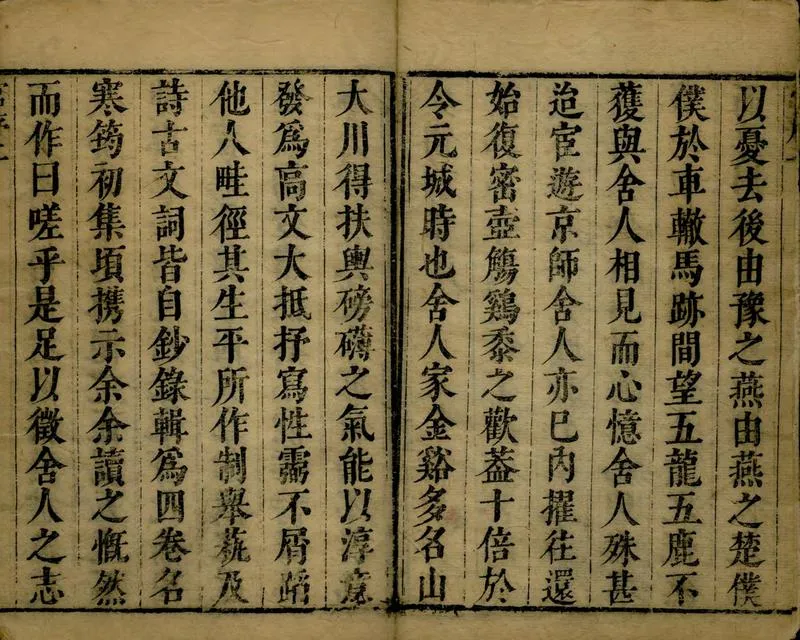 以憂去後由豫之燕由燕之楚僕
僕於車轍馬跡間望五龍五鹿不
獲與舍人相見而心憶舍人殊甚
迨宦遊京師舍人亦已內擢往還
始復密壺觴鷄黍之歡葢十倍於
令元城時也舍人家金谿多名山
大川得扶輿磅礴之氣能以淳意
發爲高文大抵抒寫性靈不屑蹈
他人畦徑其生平所作制舉蓺及
詩古文詞皆自鈔錄輯爲四卷名
寒筠初集頃携示余余讀之慨然
而作曰嗟乎是足以徵舍人之志